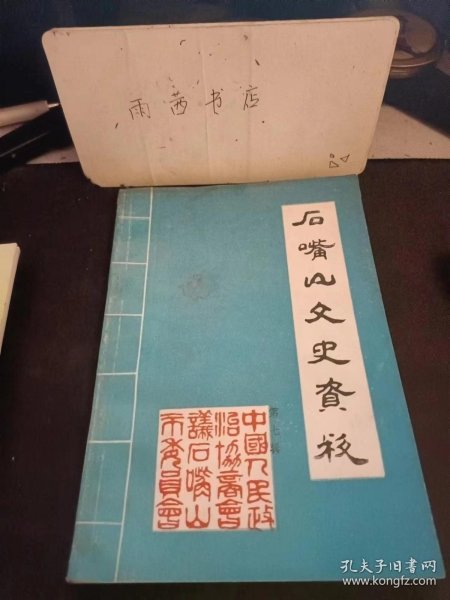 雨茜书店
石嘴山文史資料
中國人民政
治協商會
議石嘴山
市委員會
孔夫子旧书网
www.kongfz.com